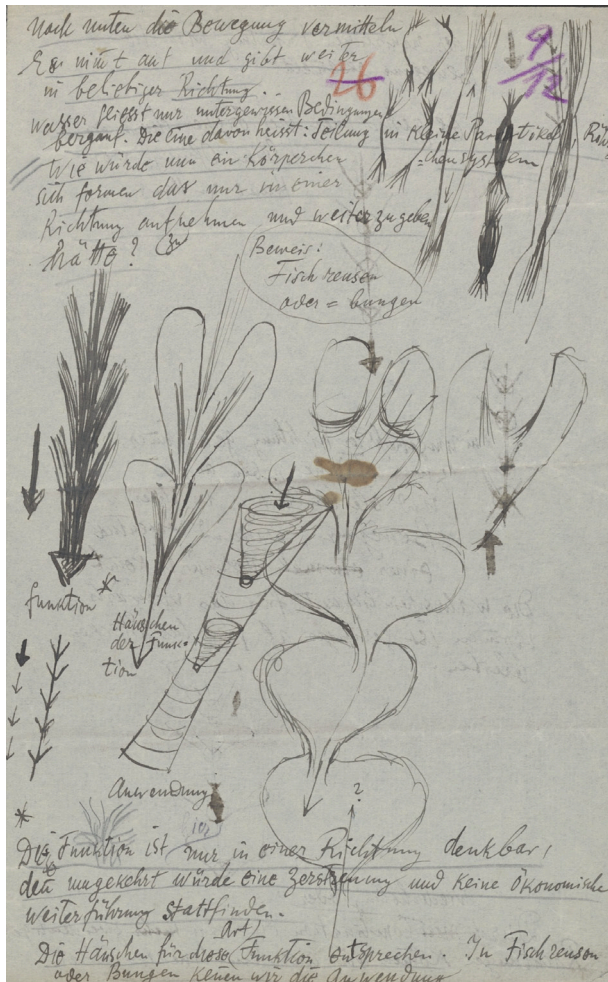 nach unten die Bewegung vermitteln
Es nimt auf und gibt weiter
in beliebiger Richtung.
26
9/12
wasser fliesst nur unter gewissen Bedingungen
bergauf. Die eine davon heisst: Teilung in kleine Partikel,
Wie würde nun ein Körperchen
-chensystem
sich formen das nur in einer
Richtung aufnehmen und weiterzugeben
hätte?
Beweis:
Fischreusen
oder = bungen
funktion *
Häuschen
der Funk-
tion
Anwendung
?
*
Die Funktion ist nur in einer Richtung denkbar,
den umgekehrt würde eine Zerstreuung und keine Ökonomische
Weiterführung stattfinden.
Art
Die Häuschen für diese Funktion entsprechen. In Fischreusen
oder Bungen kenen wir die Anwendung